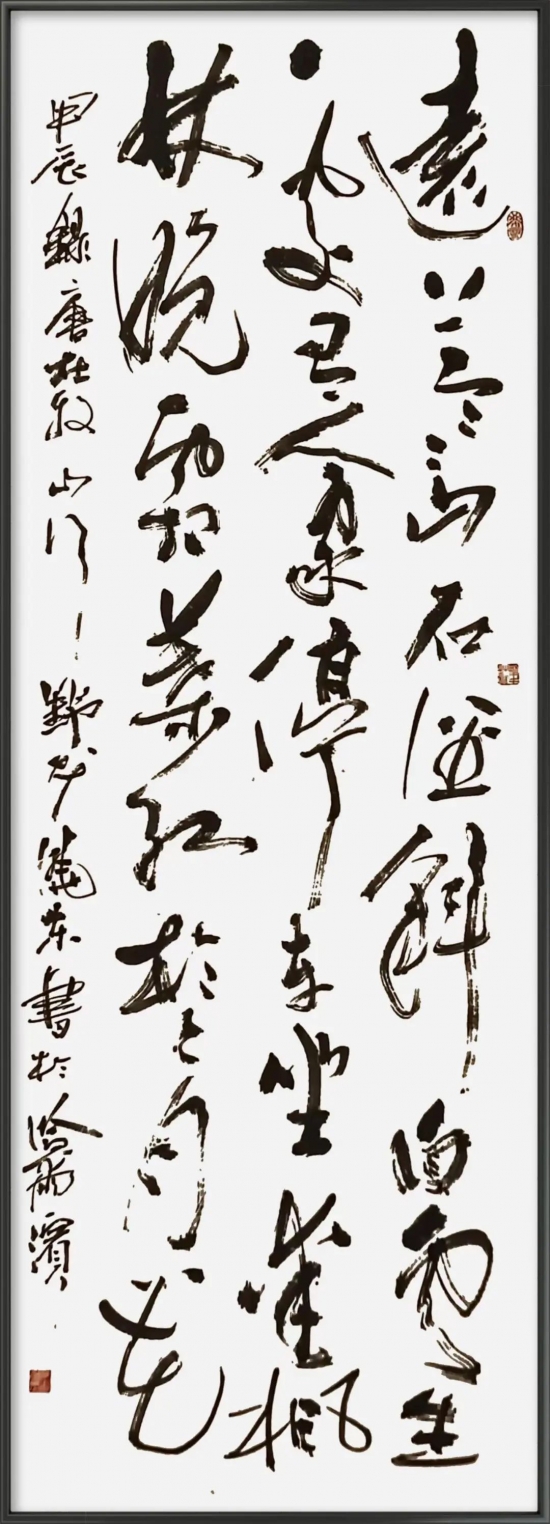 遠上寒山石徑斜白雲生
處有人家停車坐愛楓
林晚霜葉紅於二月花
甲辰錄唐杜牧山行 野 東書於哈爾濱